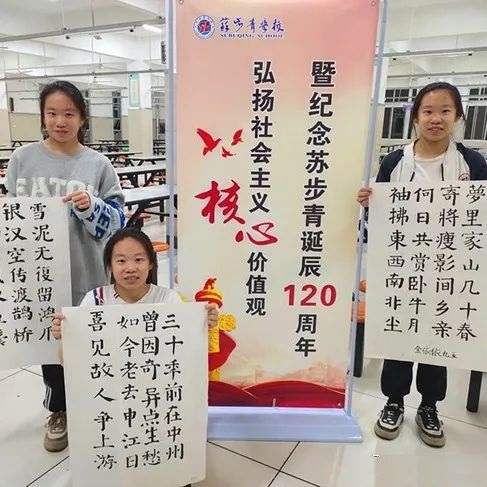 蘇步青學校
SUBUQING SCHOOL
暨纪念苏步青诞辰120周年
弘扬社会主义核心价值观
雪泥无復留鸿爪
银汉空传渡鹊桥
三十年前在中州
曾因奇异点生愁
如今老去申江日
喜见故人争上游
夢里家山几十春
寄將瘦影间乡亲
何日共赏卧牛月
袖拂東西南北尘